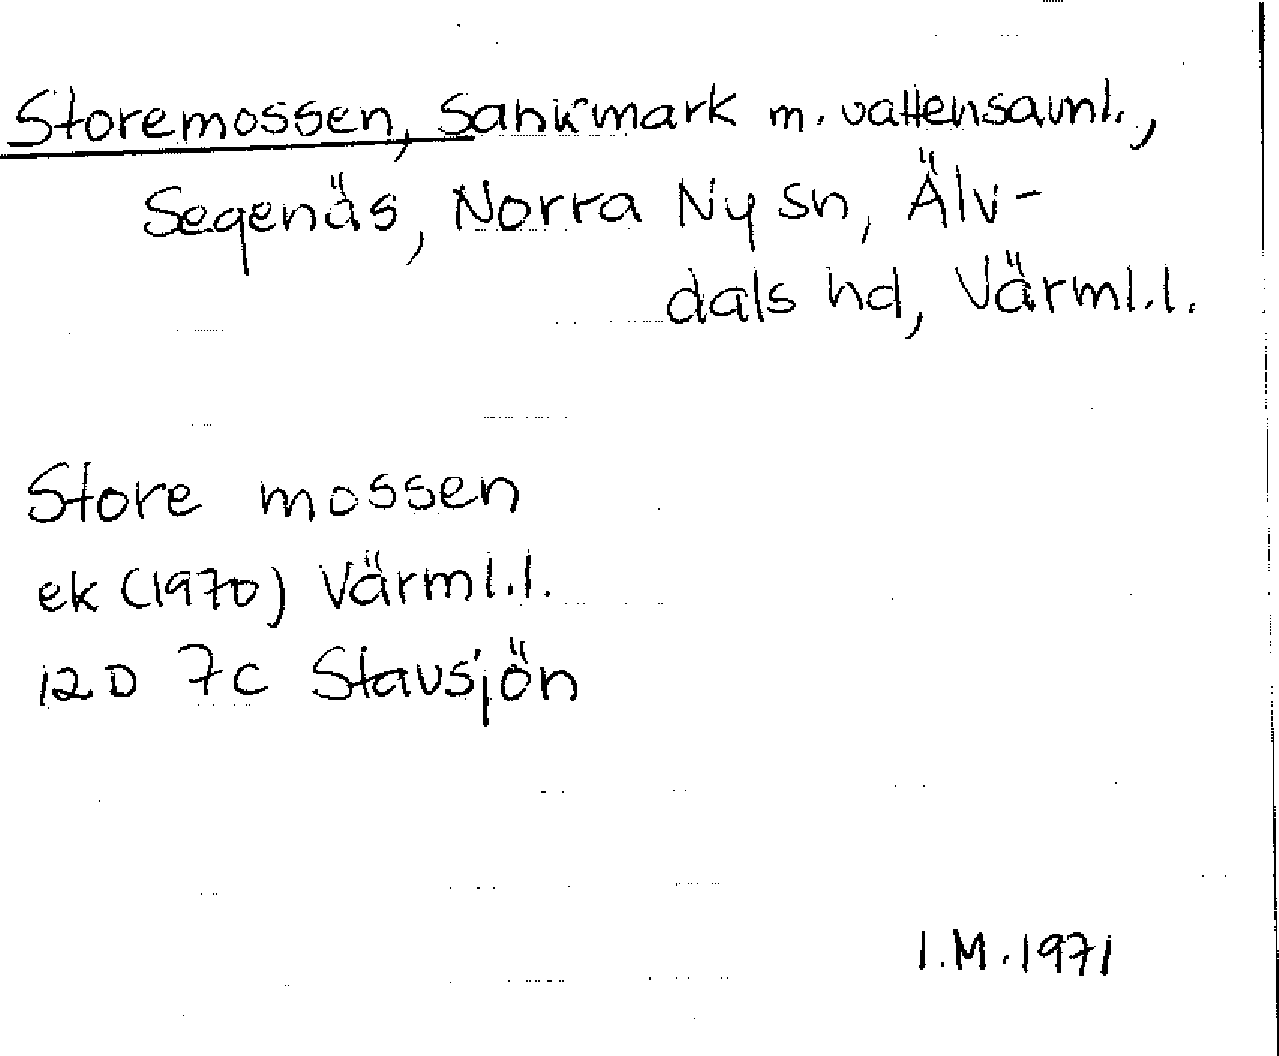 Storemossen, Sankmark m. vattensaml.,
Segenäs, Norra Ny sn, Älv-
dals hd, Värml.l.
Store mossen
ek (1970) Värml.l.
12D 7c Stavsjön
I.M.1971